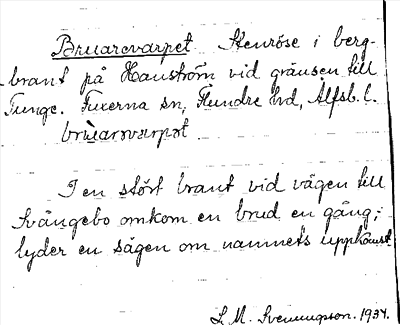 Bruarevarpet Stenröse i berg-
brant på Hanström vid gränsen till
Tunge. Fuxerna sn, Flundre hd, Älfsb. l.
bruarovarpot.
I en stört brant vid vägen till
Svängebo omkom en brud en gång;
lyder en sägen om namnets uppkomst
L. M. Svenungsson. 1934.